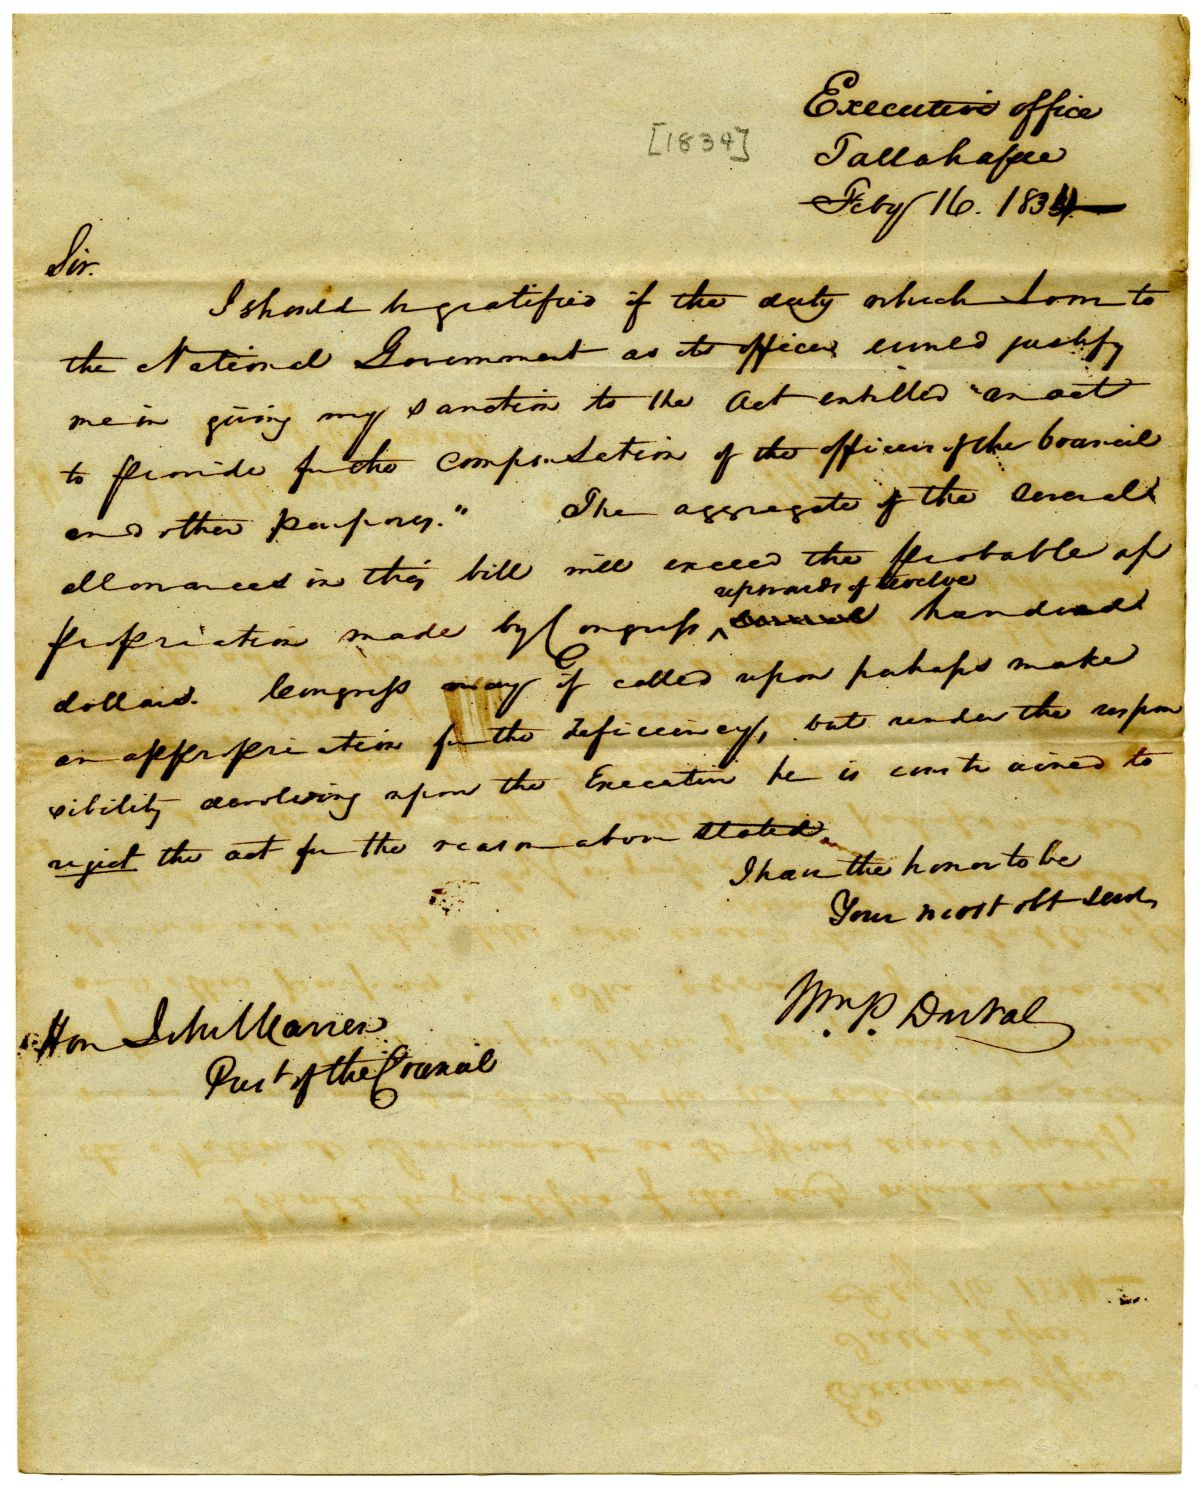 [1834]
Executive office
Tallahassee
Feby 16. 1834
Sir.
I should be gratified if the duty which I owe to
the National Government as its officer, would justify
me in giving my sanction to the Act entitled "an act
to provide for the compensation of the officers of the Council
and other purposes." The aggregate of the several
allowances in this bill will exceed the probable ap
propriation made by Congress upwards of twelve hundred
dollars. Congress may if called upon perhaps make
an appropriation for the deficiency, but under the respon
sibility devolving upon the Executive he is constrained to
reject the act for the reason above stated.
I have the honor to be
Your most obt Servt
Wm P. DuVal
Hon John Warren
Prest of the Council